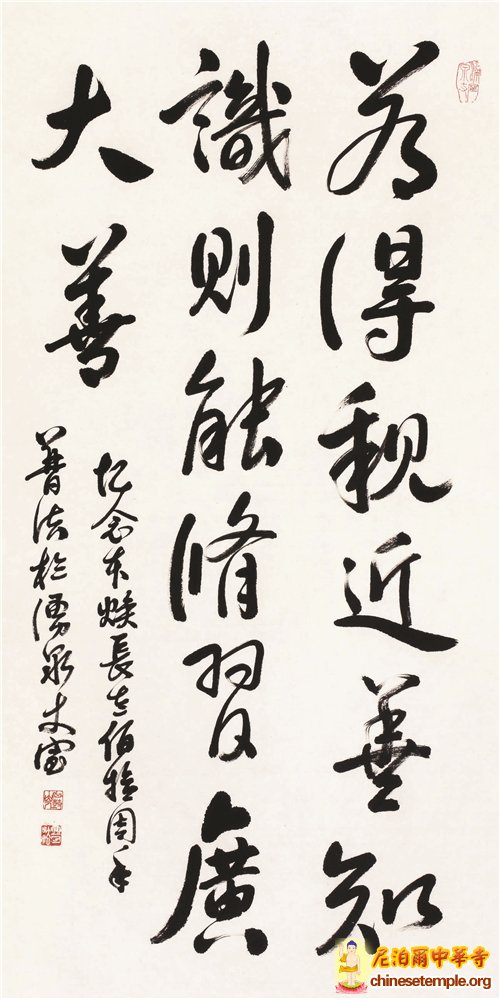 若得親近善知
識則能脩習廣
大善
忆念本焕長老佰拾周年
普法於湧泉丈室
尼泊爾中華寺
chinesetemple.org